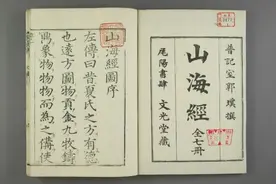 晉記室郭璞撰
山海經 全七冊
尾陽書肆 文光堂藏
山海經圖序
左傳曰昔夏氏之方有德
也遠方圖物貢金九牧鑄
鼎象物物物而為之備使